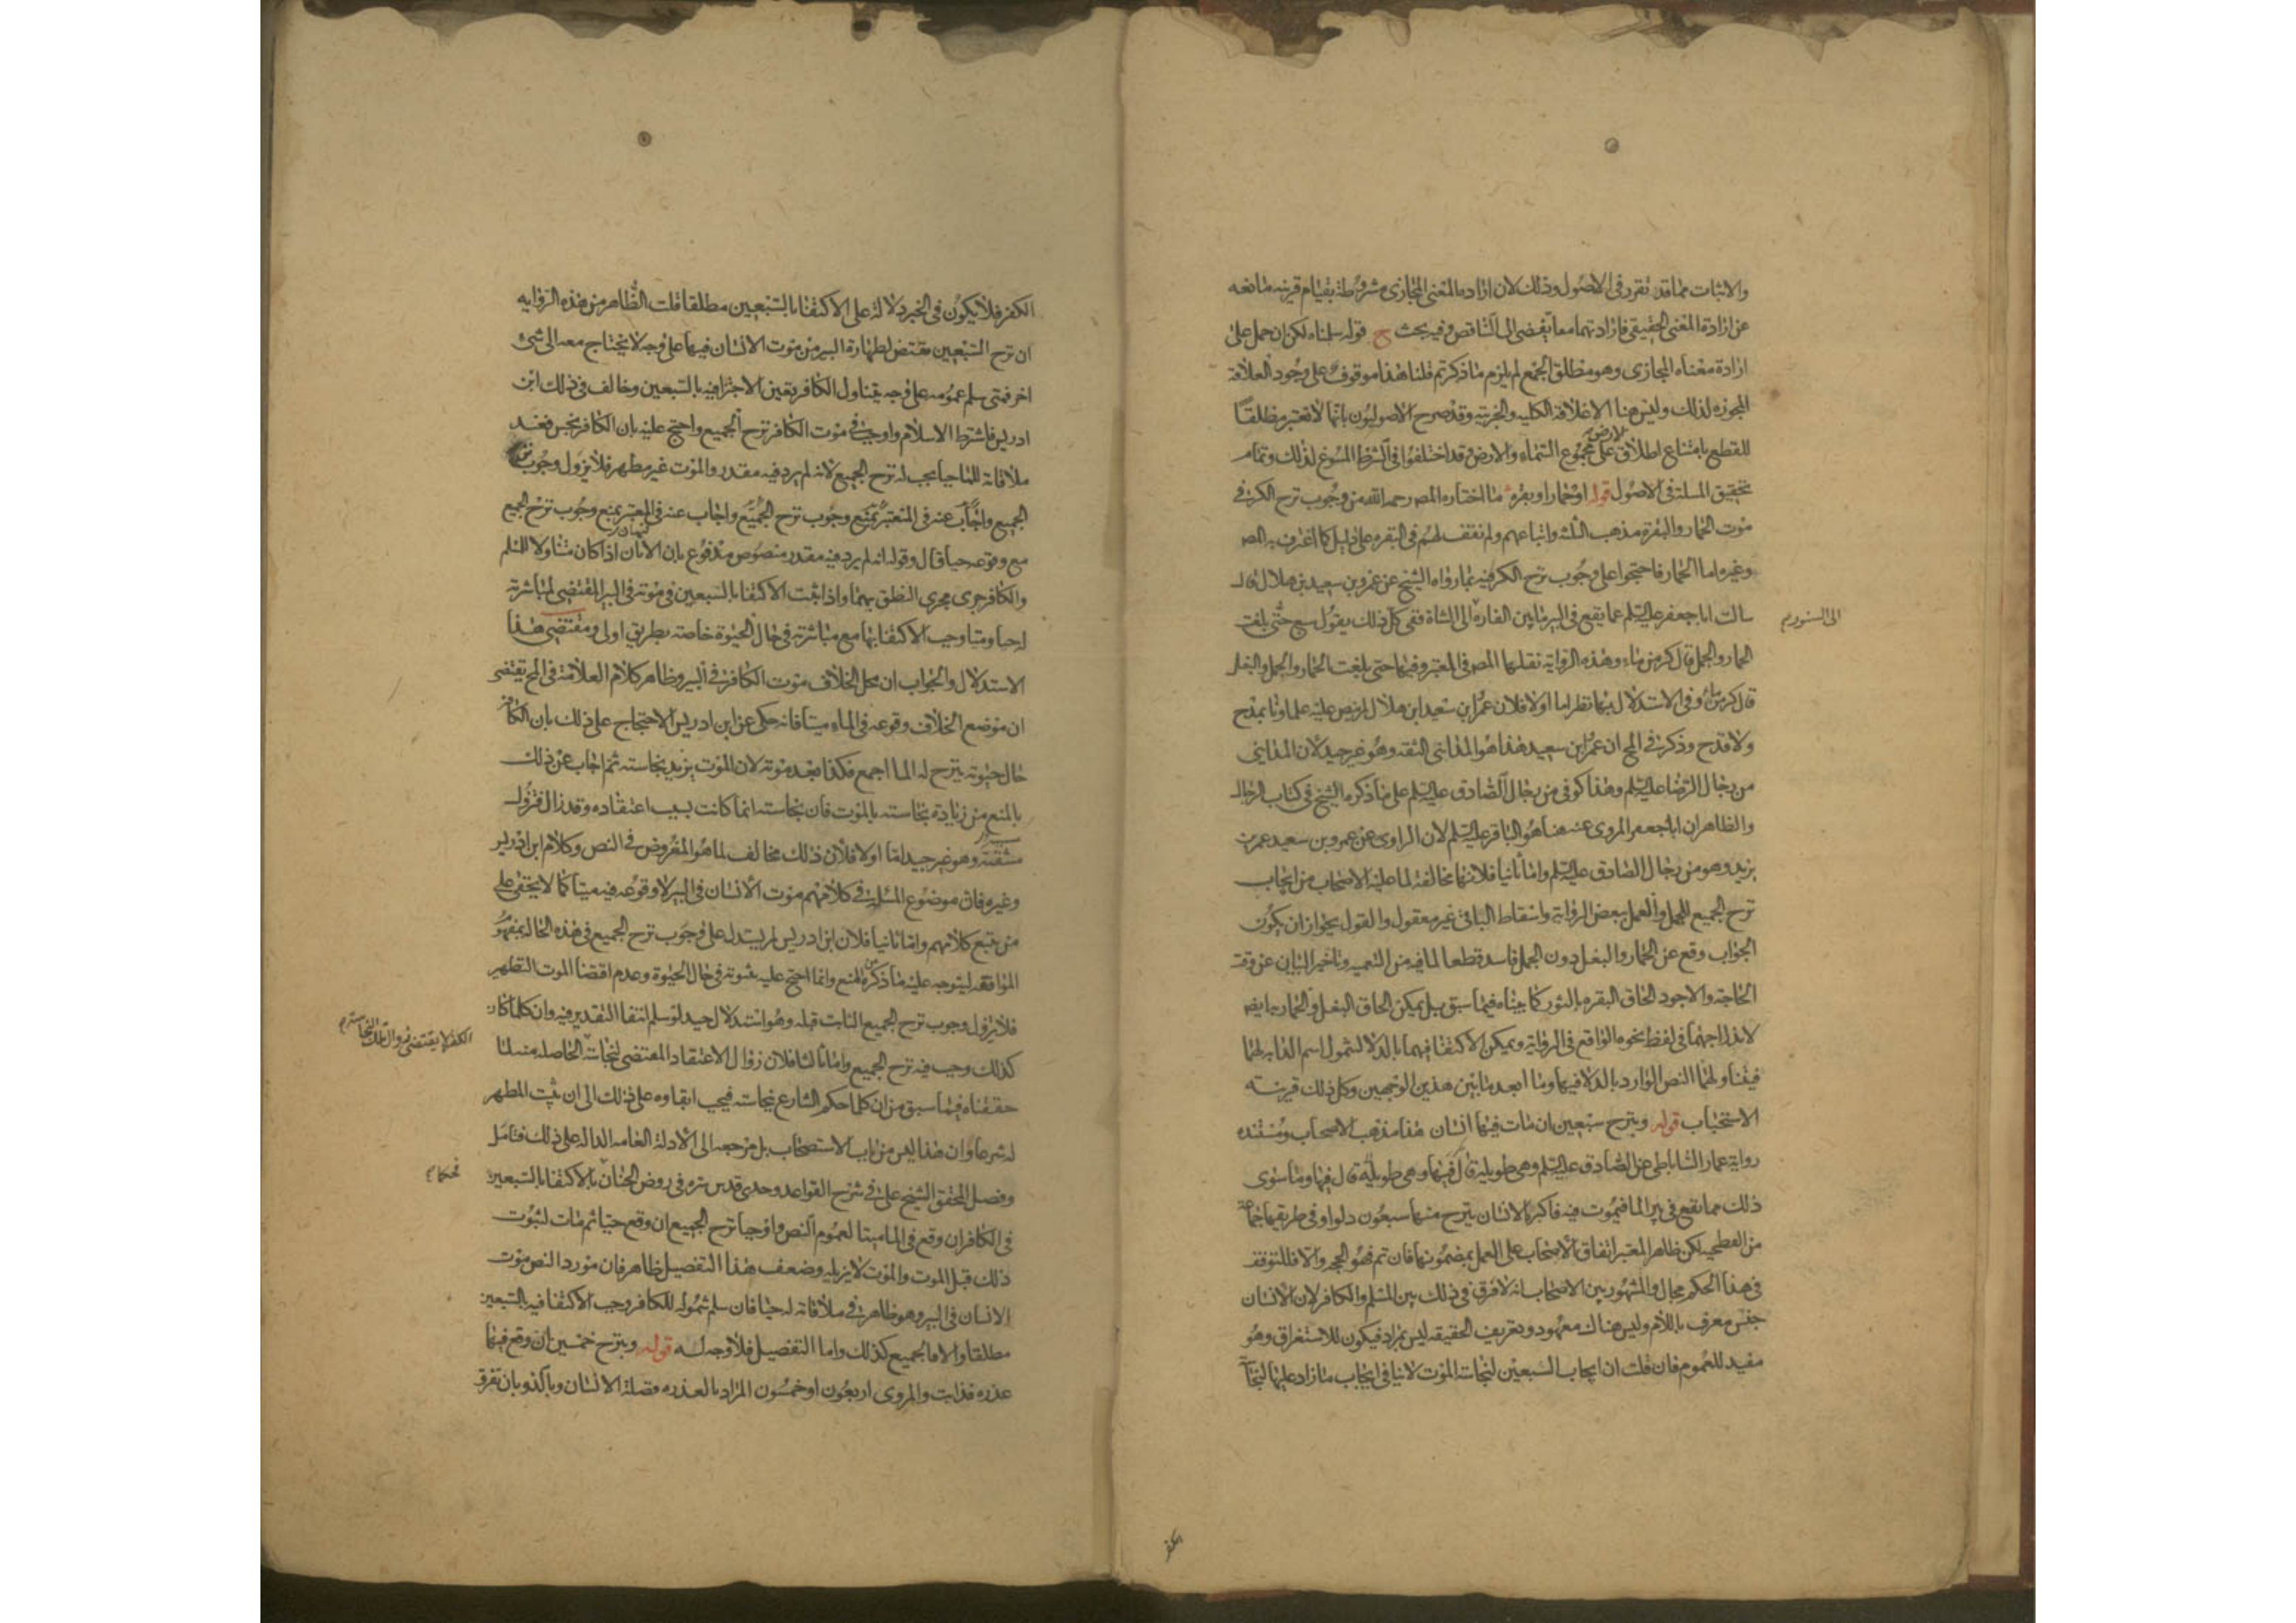 والاثبات مما قد تقرر فى الاصول وذلك لان ارادة المعنى المجازى مشروطة بقيام قرينه مانعه
عن ارادة المعنى الحقيقى فارادتهما معا يفضى الى التناقض وفيه بحث ح قوله سلمناه لكن ان حمل على
ارادة معناه المجازى وهو مطلق الجمع لم يلزم ما ذكرتم قلنا هذا موقوف على وجود العلاقة
المجوزه لذلك وليس هنا الا علاقة الكليه والجزئيه وقد صرح الاصوليون بانها لا تعتبر مطلقا
للقطع بامتناع اطلاق الارض على مجموع السماء والارض وقد اختلفوا فى الشرط المسوغ لذلك وتمام
تحقيق المسلة فى الاصول قوله او حمار او بقره ما اختاره المصر رحمه الله من وجوب نزح الكر فى
موت الحمار والبقرة مذهب الثلثه واتباعهم ولم نقف لهم فى البقره على دليل كما اعترف به المصر
وغيره اما الحمار فاحتجوا على وجوب نزح الكر فيه بما رواه الشيخ عن عمرو بن سعيد بن هلال قال
سالت ابا جعفر عليه السلم عما يقع فى البير ما بين الفاره الى الشاة ففى كل ذلك يقول سبع حتى بلغت
الى السنور م
الحمار والجمل قال كر من ماء وهذه الرواية نقلها المصر فى المعتبر وفيها حتى بلغت الحمار والجمل والبغل
قال كر من ماء وفى الاستدلال بهما نظر اما اولا فلان عمر ابن سعيد ابن هلال لم ينص عليه علماونا بمدح
ولا قدح وذكر فى المخ ان عمر ابن سعيد هذا هو المداينى الثقه وهو غير جيد لان المداينى
من رجال الرضا عليه السلم وهذا كوفى من رجال الصادق عليه السلم على ما ذكره الشيخ فى كتاب الرجال
والظاهر ان ابا جعفر المروى عنه هنا هو الباقر عليه السلم لان الراوى عن عمرو بن سعيد عمر بن
يزيد وهو من رجال الصادق عليه السلم واما ثانيا فلانها مخالفة لما عليه الاصحاب من ايجاب
نزح الجميع للجمل والعمل ببعض الرواية واسقاط الباقى غير معقول والقول بجواز ان يكون
الجواب وقع عن الحمار والبغل دون الجمل فاسد قطعا لما فيه من التعميه وتاخير البيان عن وقت
الحاجة والاجود الحاق البقره بالثور كما بيناه فيما سبق بل يمكن الحاق البغل والحمار به ايضا
لاندراجهما فى لفظ نحوه الواقع فى الرواية ويمكن الاكتفا فيهما بالدلا لشمول اسم الدابه لهما
فيتناولهما النص الوارد بالدلا فيها وما ابعد ما بين هذين الوجهين وكل ذلك قرينة
الاستحباب قوله وبنزح سبعين ان مات فيها انسان هذا مذهب الاصحاب ومستنده
رواية عمار الساباطى عن الصادق عليه السلم وهى طويلة قال فيها وهى طويلة قال فيها وما سوى
ذلك مما يقع فى بير الما فيموت فيه فاكبره الانسان ينزح منها سبعون دلوا وفى طريقها جماعة
من الفطحيه لكن ظاهر المعتبر اتفاق الاصحاب على العمل بمضمونها فان تم فهو الحجه والا فللتوقف
فى هذا الحكم مجال والمشهور بين الاصحاب انه لا فرق فى ذلك بين المسلم والكافر لان الانسان
جنس معرف باللام وليس هناك معهود وتعريف الحقيقه ليس بمراد فيكون للاستغراق وهو
مفيد للعموم فان قلت ان ايجاب السبعين لنجاسة الموت لا ينافى ايجاب ما زاد عليها لنجاسة
الكفر
الكفر فلا يكون فى الخبر دلالة على الاكتفا بالسبعين مطلقا قلت الظاهر من هذه الروايه
ان نزح السبعين مقتض لطهارة البير من موت الانسان فيها على وجه لا يحتاج معه الى شئ
اخر فمتى سلم عمومه على وجه يتناول الكافر تعين الاجتزا فيه بالسبعين وخالف فى ذلك ابن
ادريس فاشترط الاسلام واوجب فى موت الكافر نزح الجميع واحتج عليه بان الكافر نجس فعند
ملاقاته للما حيا يجب له نزح الجميع لانه لم يرد فيه مقدر والموت غير مطهر فلا يزول وجوب نزح
الجميع واجاب عنه فى المعتبر بمنع وجوب نزح الجميع واجاب عنه فى المعتبر بمنع وجوب نزح الجميع
مع وقوعه حيا قال وقوله انه لم يرد فيه مقدر منصوص مدفوع بان الانسان اذا كان متناولا للمسلم
والكافر جرى مجرى النطق بهما واذا ثبت الاكتفا بالسبعين فى موته فى البير المقتضى لمباشرته
لها حيا وميتا وجب الاكتفا بها مع مباشرته فى حال الحيوة خاصة بطريق اولى ومقتضى هذا
الاستدلال والجواب ان محل الخلاف موت الكافر فى البير وظاهر كلام العلامة فى المخ يقتضى
ان موضع الخلاف وقوعه فى الماء ميتا فانه حكى عن ابن ادريس الاحتجاج على ذلك بان الكافر
حال حيوته ينزح له الما اجمع فكذا بعد موته لان الموت يزيد نجاسته ثم اجاب عن ذلك
بالمنع من زيادة نجاسته بالموت فان نجاسته انما كانت بسبب اعتقاده وقد زال فتزول
مسببه وهو غير جيد اما اولا فلان ذلك مخالف لما هو المفروض فى النص وكلام ابن ادريس
وغيره فان موضوع المسلة فى كلامهم موت الانسان فى البير لا وقوعه فيه ميتا كما لا يخفى على
من تتبع كلامهم واما ثانيا فلان ابن ادريس لم يستدل على وجوب نزح الجميع فى هذه الحالة بمفهوم
الموافقه ليتوجه عليه ما ذكره من المنع وانما احتج عليه بثبوته فى حال الحيوة وعدم اقتضا الموت التطهير
فلا يزول وجوب نزح الجميع الثابت قبله وهو استدلال جيد لو سلم انتفا التقدير فيه وان كلما كان
كذلك وجب فيه نزح الجميع واما ثالثا فلان زوال الاعتقاد المقتضى لنجاسة الحاصله منه لما
الكفر لا يقتضى زوال تلك النجاسة م
حققناه فيما سبق من ان كلما حكم الشارع بنجاسته فيجب ابقاوه على ذلك الى ان يثبت المطهر
له شرعا وان هذا ليس من باب الاستصحاب بل مرجعه الى الادلة العامه الداله على ذلك فتامل
وفصل المحقق الشيخ على فى شرح القواعد وجدى قدس سره فى روض الجنان بالاكتفا بالسبعين
فحكما م
فى الكافر ان وقع فى الما ميتا لعموم النص واوجبا نزح الجميع ان وقع حيا ثم مات لثبوت
ذلك قبل الموت والموت لا يزيله وضعف هذا التفصيل ظاهر فان مورد النص موت
الانسان فى البير وهو ظاهر فى ملاقاته له حيا فان سلم شموله للكافر وجب الاكتفا فيه بالسبعين
مطلقا والا فالجميع كذلك واما التفصيل فلا وجه له قوله وبنزح خمسين ان وقع فيها
عذره فذابت والمروى اربعون او خمسون المراد بالعذره فضلة الانسان وبالذوبان تفرق